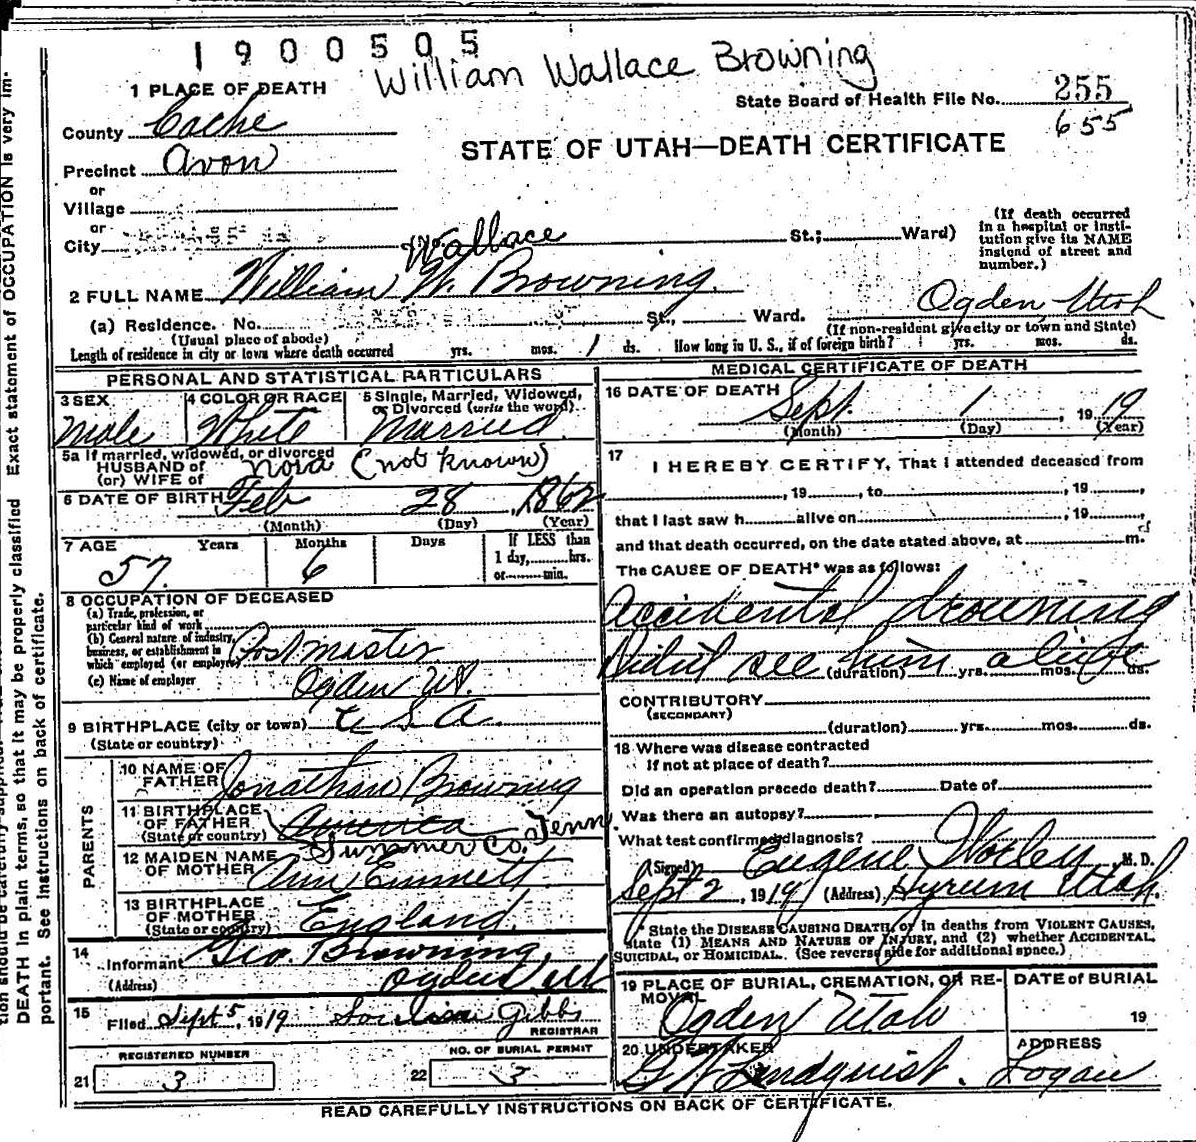 1900505
William Wallace Browning
1 PLACE OF DEATH
State Board of Health File No. 255
655
County Cache
STATE OF UTAH—DEATH CERTIFICATE
Precinct Avon
or
Village
or
City St.; Ward)
(If death occurred in a hospital or insti-
tution give its NAME
instead of street and
number.)
Wallace
2 FULL NAME William W. Browning.
Ogden, Utah
(a) Residence. No. St., Ward.
(Usual place of abode)
(If non-resident give city or town and State)
Length of residence in city or town where death occurred yrs. mos. 1 ds. How long in U. S., if of foreign birth? yrs. mos. ds.
PERSONAL AND STATISTICAL PARTICULARS
3 SEX
Male
4 COLOR OR RACE
White
5 Single, Married, Widowed,
or Divorced (write the word)
Married
5a If married, widowed, or divorced
HUSBAND of
(or) WIFE of
Nora (not known)
6 DATE OF BIRTH Feb 28, 1862
(Month) (Day) (Year)
7 AGE Years Months Days
57. 6
If LESS than
1 day, hrs.
or min.
8 OCCUPATION OF DECEASED
(a) Trade, profession, or
particular kind of work
(b) General nature of industry,
business, or establishment in
which employed (or employer)
Postmaster
(c) Name of employer
Ogden Ut.
9 BIRTHPLACE (city or town) U S A.
(State or country)
PARENTS
10 NAME OF
FATHER
Jonathan Browning
11 BIRTHPLACE
OF FATHER
(State or country)
America
Summer Co. Tenn
12 MAIDEN NAME
OF MOTHER
Ann Emmett.
13 BIRTHPLACE
OF MOTHER
(State or country)
England.
14
Informant Geo. Browning,
(Address) Ogden Utah
15
Filed Sept 5, 1919 Gibbs
REGISTRAR
REGISTERED NUMBER
21 3
NO. OF BURIAL PERMIT
22 3
MEDICAL CERTIFICATE OF DEATH
16 DATE OF DEATH
Sept. 1, 1919
(Month) (Day) (Year)
17
I HEREBY CERTIFY, That I attended deceased from
, 19 , to , 19 ,
that I last saw h alive on , 19 ,
and that death occurred, on the date stated above, at m.
The CAUSE OF DEATH* was as follows:
Accidental drowning
Didnt see him alive
(duration) yrs. mos. ds.
CONTRIBUTORY
(SECONDARY)
(duration) yrs. mos. ds.
18 Where was disease contracted
If not at place of death?
Did an operation precede death? Date of
Was there an autopsy?
What test confirmed diagnosis?
(Signed) Eugene Worley, M. D.
Sept 2, 1919 (Address) Hyrum Utah.
* State the DISEASE CAUSING DEATH, or in deaths from VIOLENT CAUSES,
state (1) MEANS AND NATURE OF INJURY, and (2) whether ACCIDENTAL,
SUICIDAL, or HOMICIDAL. (See reverse side for additional space.)
19 PLACE OF BURIAL, CREMATION, OR RE-
MOVAL
Ogden Utah
DATE OF BURIAL
19
20 UNDERTAKER
Lindquist.
ADDRESS
Logan
READ CAREFULLY INSTRUCTIONS ON BACK OF CERTIFICATE.
DEATH in plain terms, so that it may be properly classified Exact statement of OCCUPATION is very im-
portant. See instructions on back of certificate.